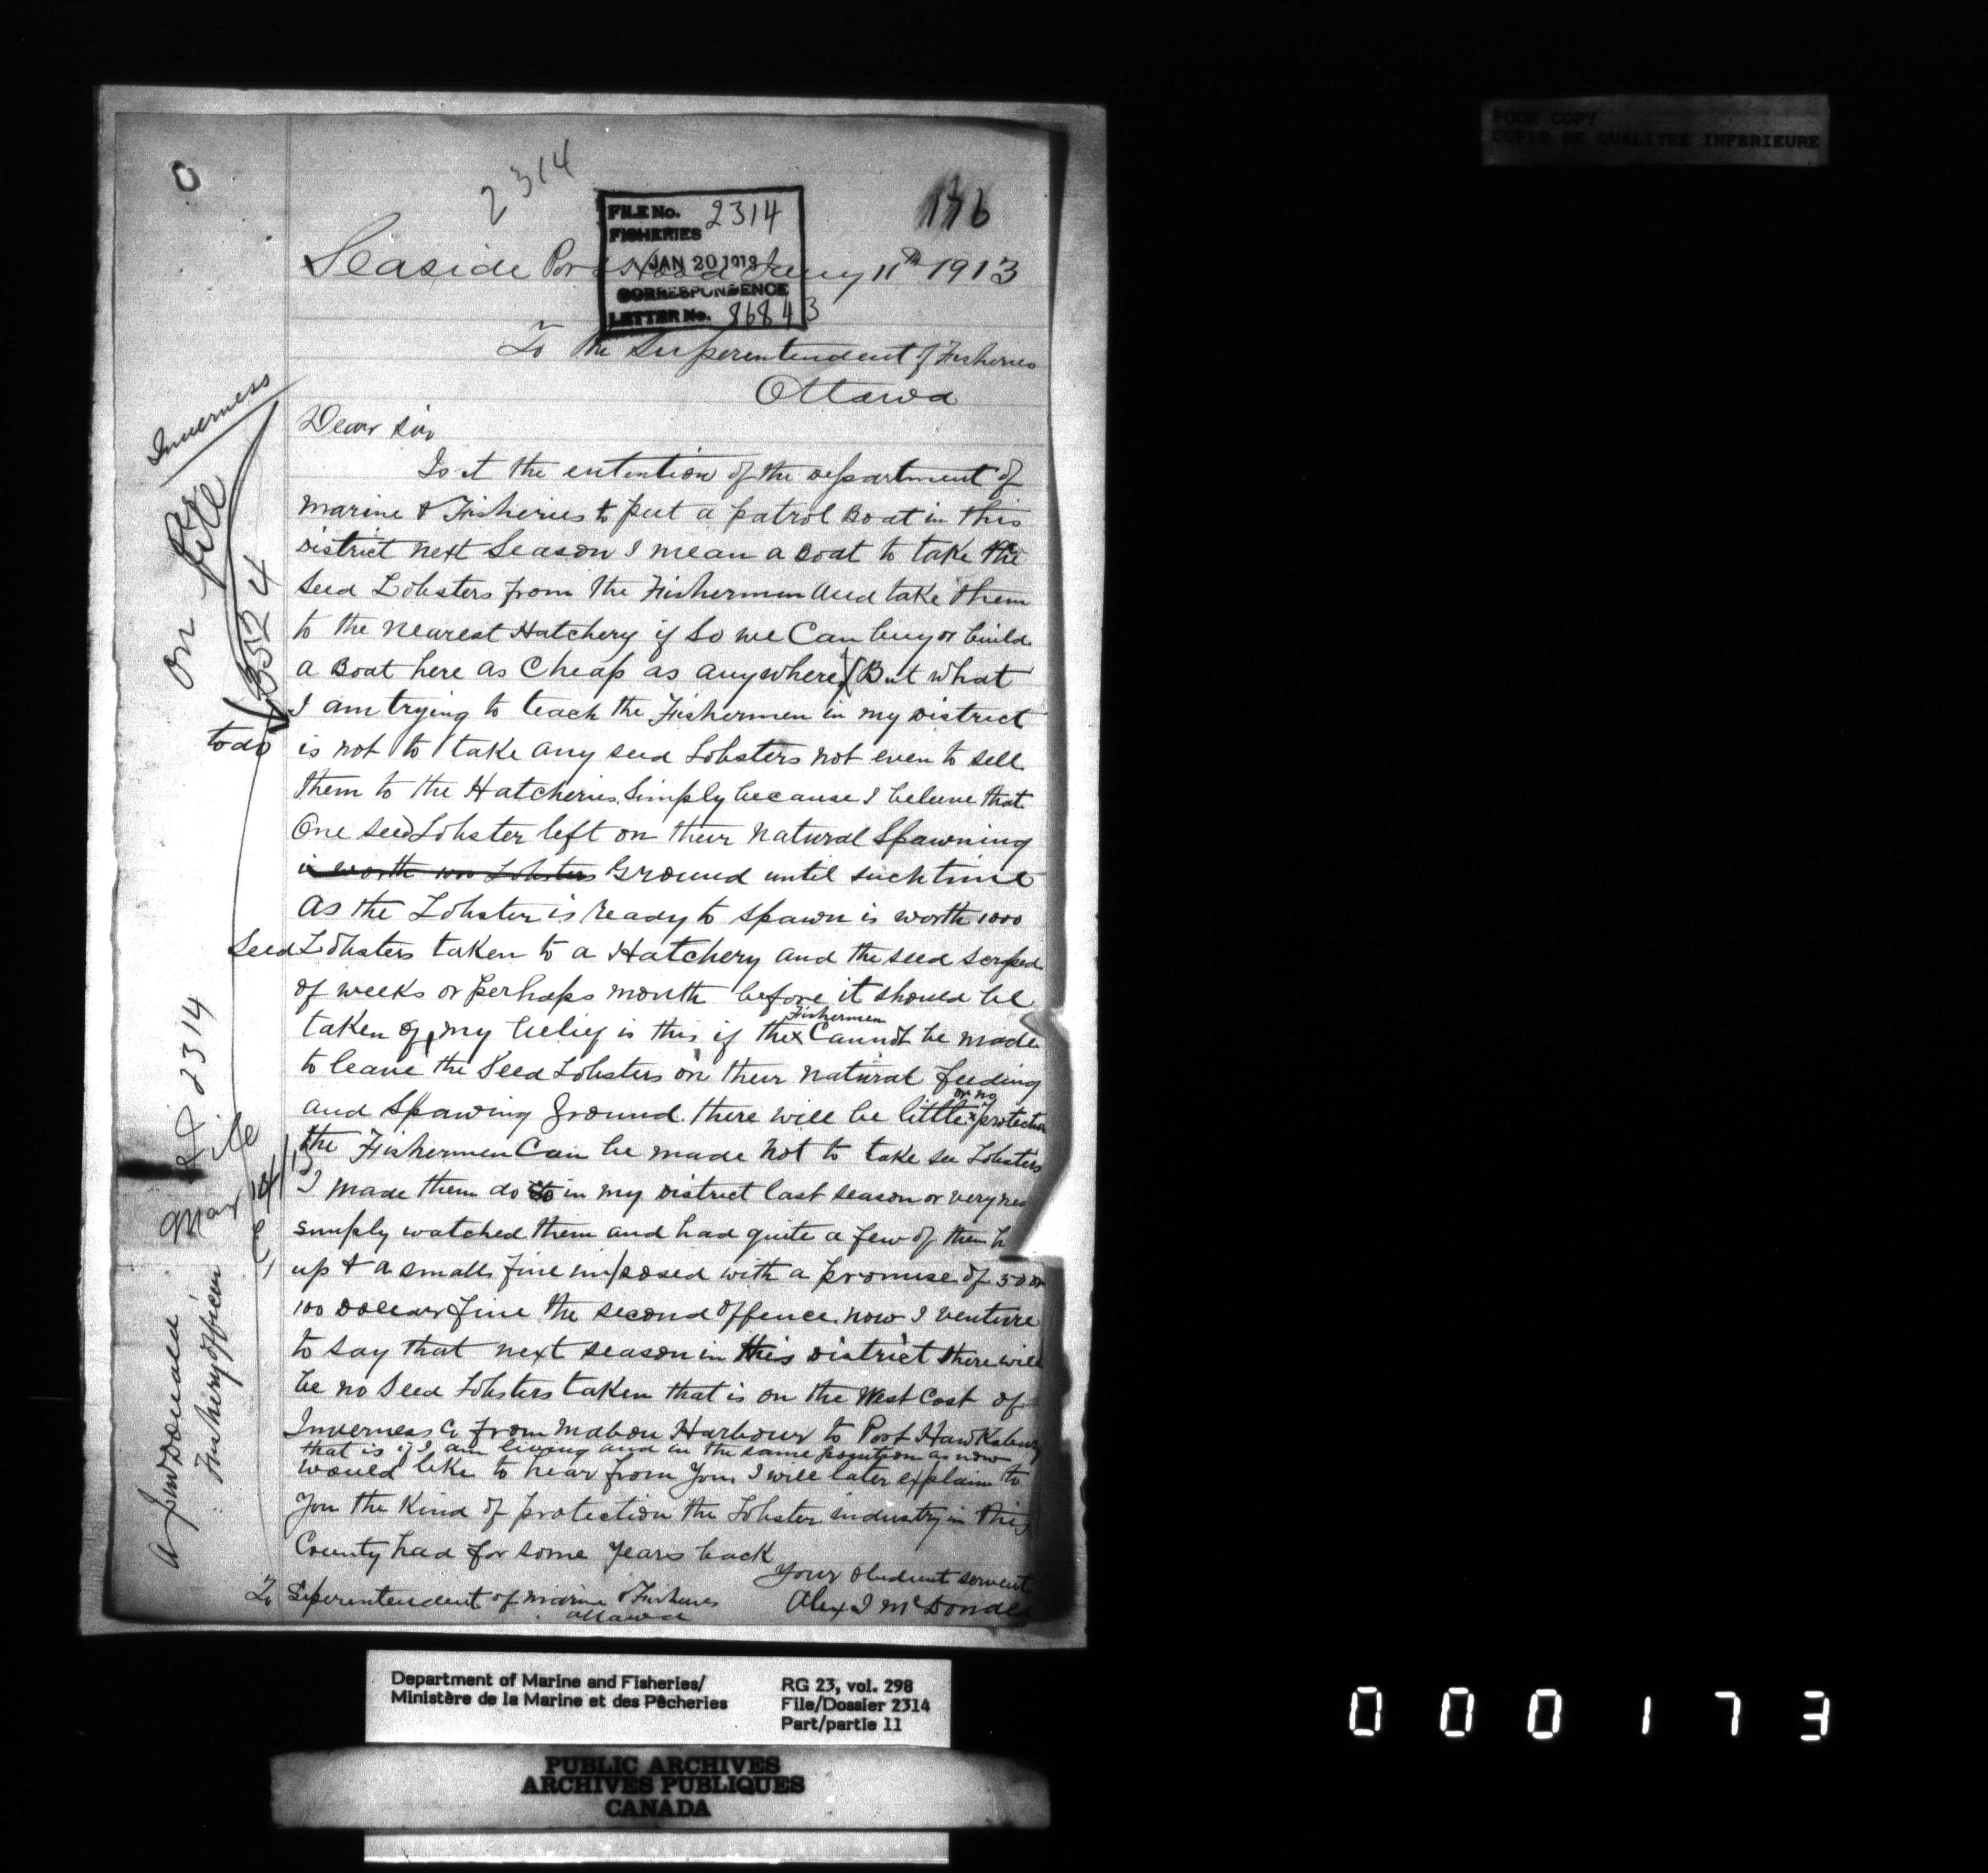 POOR COPY
COPIE DE QUALITEE INFERIEURE
2314
176
FILE No. 2314
FISHERIES
JAN 20 1913
CORRESPONDENCE
LETTER No. 86843
Seaside Port Hood Jany 11th 1913
To the Superentendent of Fisheries
Ottawa
Dear Sir
Is it the entention of the Department of
Marine & Fisheries to put a patrol Boat in this
District next Season I mean a Boat to take the
Seed Lobsters from the Fishermen and take them
to the nearest Hatchery if so we Can buy or build
a Boat here as Cheap as anywhere But what
I am trying to teach the Fishermen in my District
to do is not to take any seed Lobsters not even to sell
them to the Hatcheries. Simply because I beleive that
One seed Lobster left on their natural Spawning
is worth 1000 Lobsters Ground until such time
as the Lobster is ready to spawn is worth 1000
Seed Lobsters taken to a Hatchery and the seed scraped
of weeks or perhaps month before it should be
taken of, my belief is this if the Fishermen Cannot be made
to leave the Seed Lobsters on their natural feeding
and Spawing ground. there will be little or no protection
the Fishermen Can be made not to take see Lobsters
I made them do so in my District last season or very
simply watched them and had quite a few of them
up & a small fine imposed with a promise of 50 or
100 Dollear fine the second offence. now I venture
to say that next season in this District there will
be no Seed Lobsters taken that is on the West Cost of
Inverness Co from Mabou Harbour to Port Hawksbury
that is if I am living and in the same position as now
would like to hear from you I will later explain to
you the Kind of protection the Lobster industry in this
County had for some years back
Your Obedient servent
Alex J McDonald
To Superentendent of Marine & Fisheries
Ottawa
Inverness
on file
3524
2314
File
Mar 14/13
A J McDonald
Fishery Officer
Department of Marine and Fisheries/
Ministère de la Marine et des Pêcheries
RG 23, vol. 298
File/Dossier 2314
Part/partie 11
PUBLIC ARCHIVES
ARCHIVES PUBLIQUES
CANADA
000173